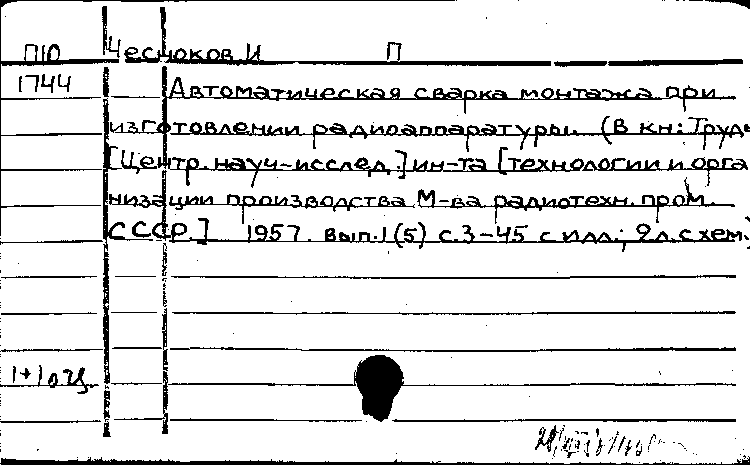 П10 Чесноков, И П
1744 Автоматическая сварка монтажа при
изготовлении радиоаппаратуры. (В кн: Труды
[Центр. науч-исслед.] ин-та [технологии и орга
низации производства М-ва радиотехн. пром.
СССР.] 1957. вып.1(5) с.3-45 с илл.; 2л.схем.)
1+1 оч.